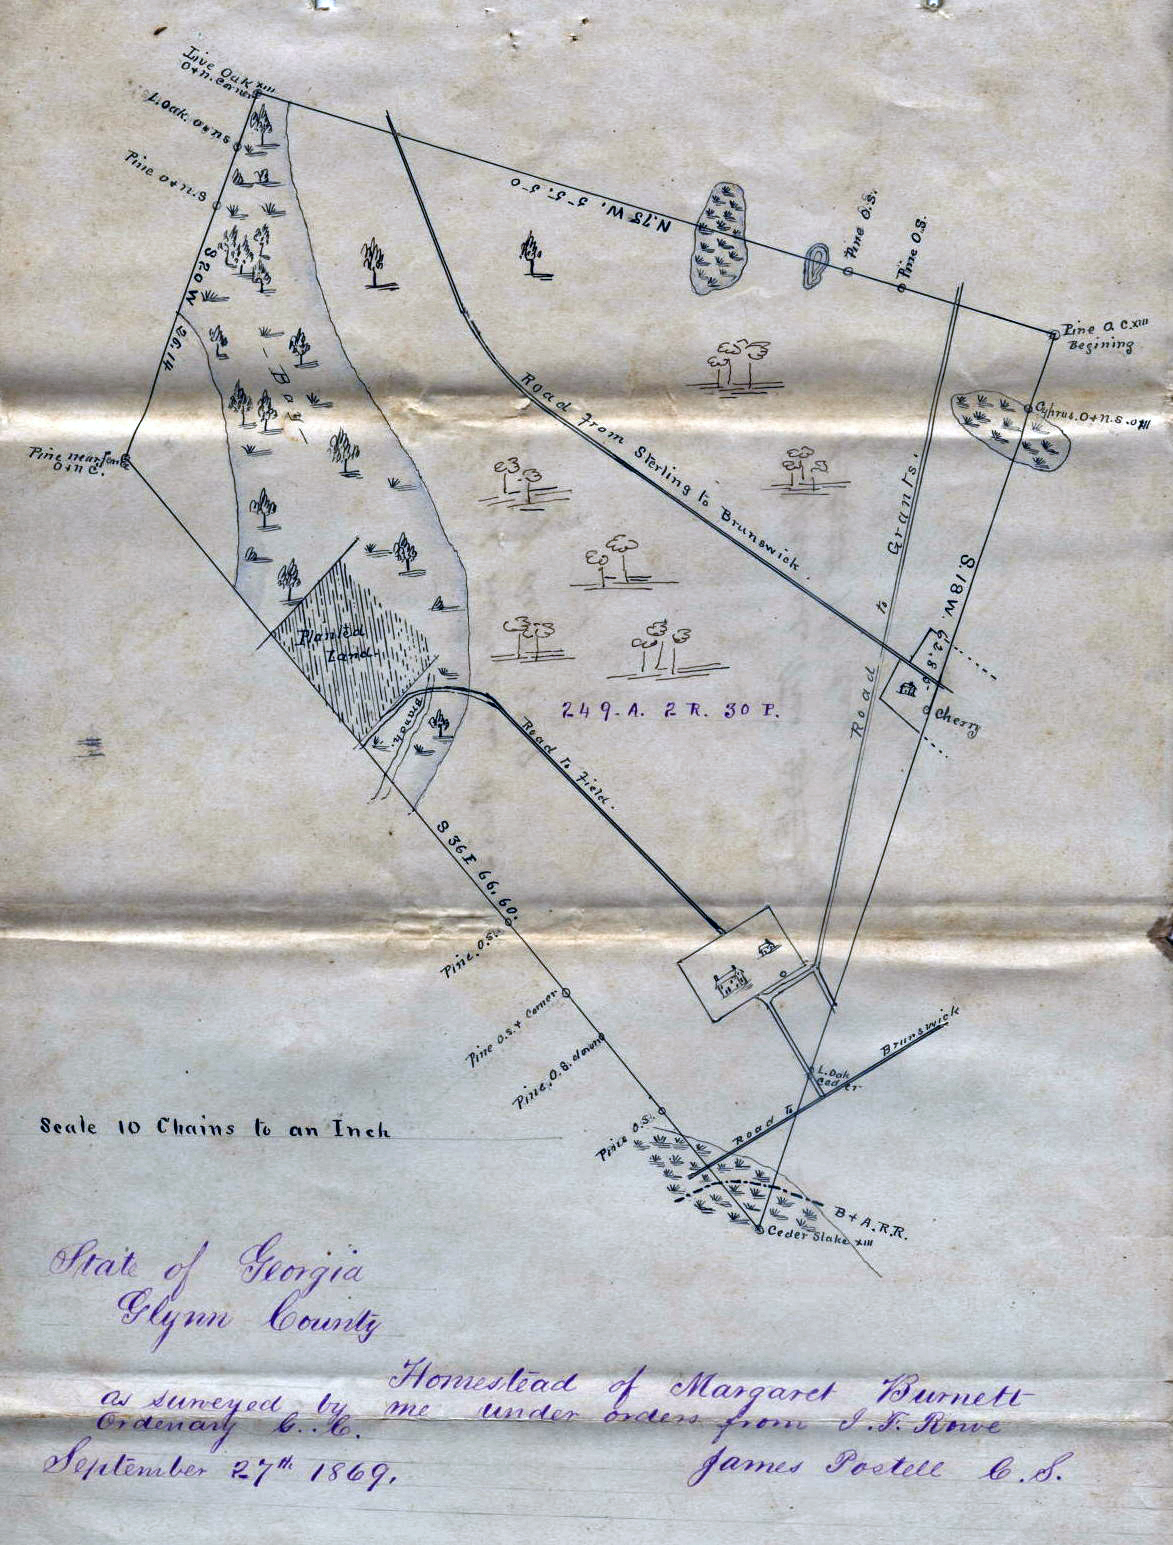 Live Oak XIII
O+n. Corner
L. Oak. O+n S
Pine O+n. S
S 20 W
26.14
N. 75 W. 5-5, 5-0
Pine O.S.
Pine O.S.
Pine O C. XIII
Begining
Cyprus. O+n. S.
Pine near
O+n C.
- Bog -
Road from Sterling to Brunswick
Road to Grants.
S. 18 W.
Cherry
Planted
Land
Branch.
Road to Field.
249. A. 2 R. 30 P.
S 36 E 66. 60.
Pine. O.S.
Pine O.S. + Corner
Pine. O.S. down
Pine O.S.
L. Oak
Ceder
Road to Brunswick
B + A. R.R.
Ceder Stake XIII
Scale 10 Chains to an Inch
State of Georgia
Glynn County
Homestead of Margaret Burnett
as surveyed by me under orders from I. F. Rowe
Ordenary C. C.
September 27th 1869.
James Postell C. S.